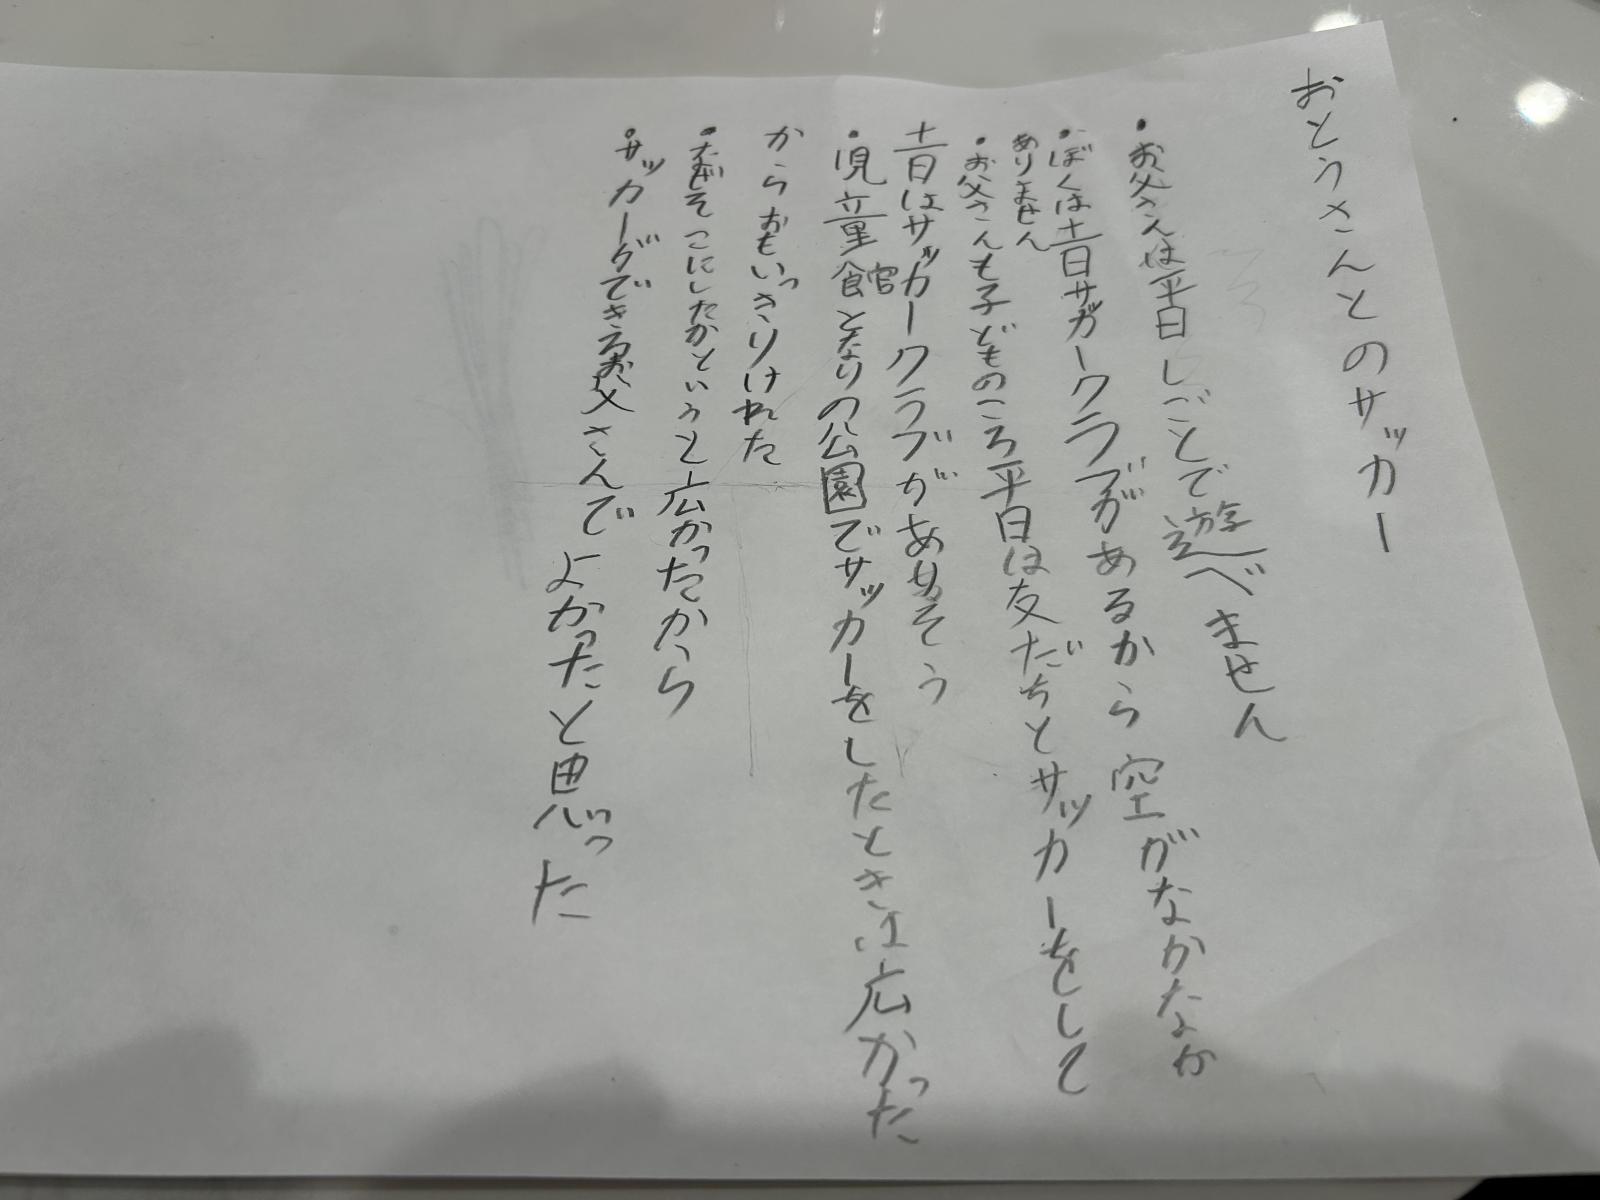 おとうさんとのサッカー
・お父さんは平日しごとで遊べません
・ぼくは土日サッカークラブがあるから空がなかなか
ありません
・お父さんも子どものころ平日は友だちとサッカーをして
土日はサッカークラブがあめそう
・児童館となりの公園でサッカーをしたときは広かった
からおもいっきりけれた
・なぜそこにしたかというと広かったから
・サッカーができるお父さんでよかったと思った